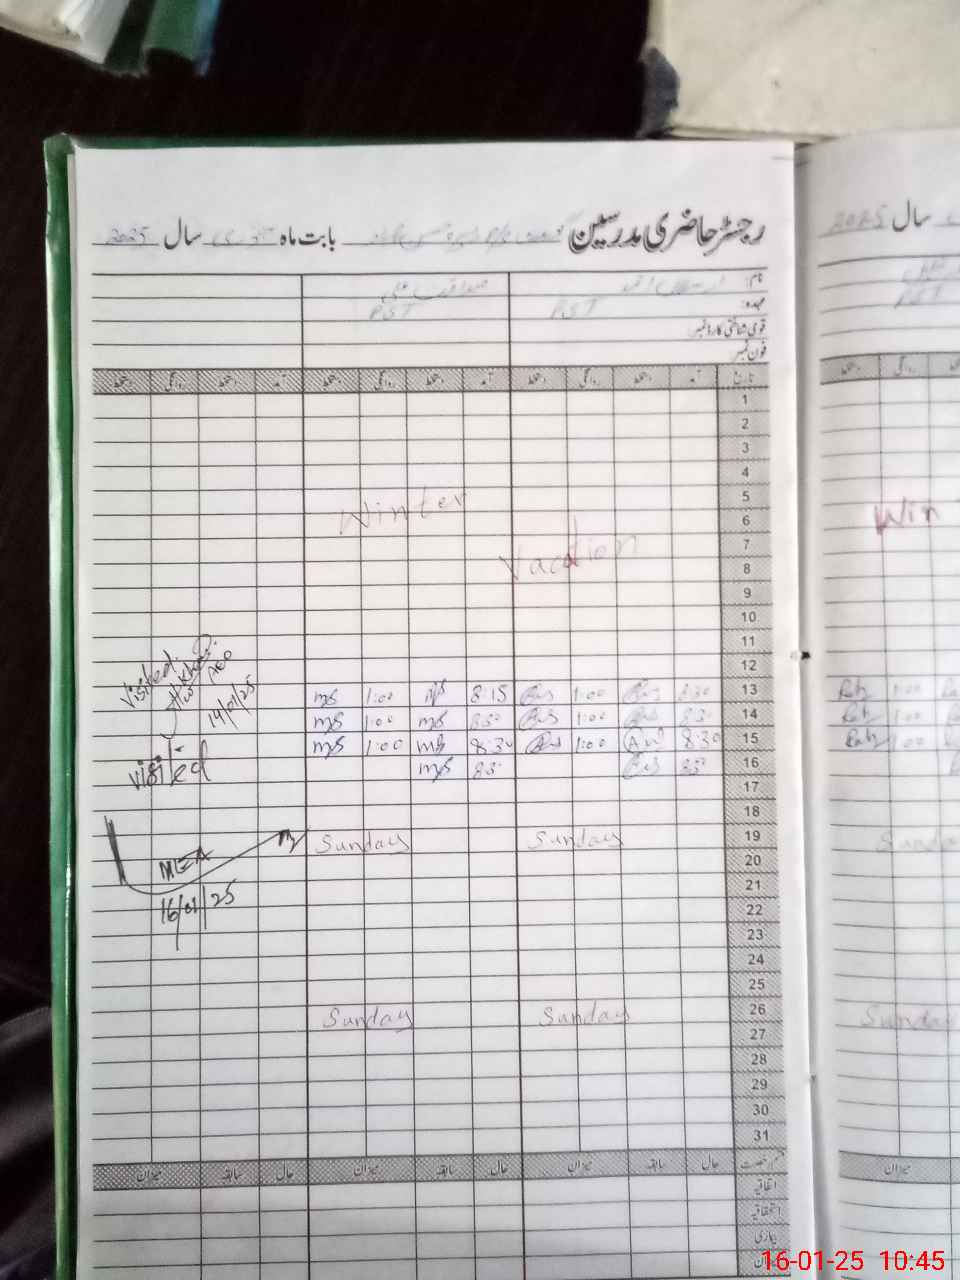 رجسٹر حاضری مدرسین بابت ماہ سال 2025
نام:
عہدہ: PST PST
قومی شناختی کارڈ نمبر
فون نمبر
تاریخ آمد دستخط روانگی دستخط آمد دستخط روانگی دستخط آمد دستخط روانگی دستخط
1
2
3
4
5
Winter
6
7
Vacation
8
9
10
11
12
13 8:30 1:00 8:15 1:00
14 8:30 1:00 8:30 1:00
15 8:30 1:00 8:30 1:00
16 8:30 8:30
17
18
19 Sunday Sunday
20
21
22
23
24
25
26 Sunday Sunday
27
28
29
30
31
Visited.
AEO
14/01/25
Visited
MEA
16/01/25
قسم رخصت حال سابقہ میزان حال سابقہ میزان حال سابقہ میزان
اتفاقیہ
استحقاقیہ
بیماری
سال 2025
PST
Win
1:00
1:00
1:00
Sunday
Sunday
میزان
16-01-25 10:45